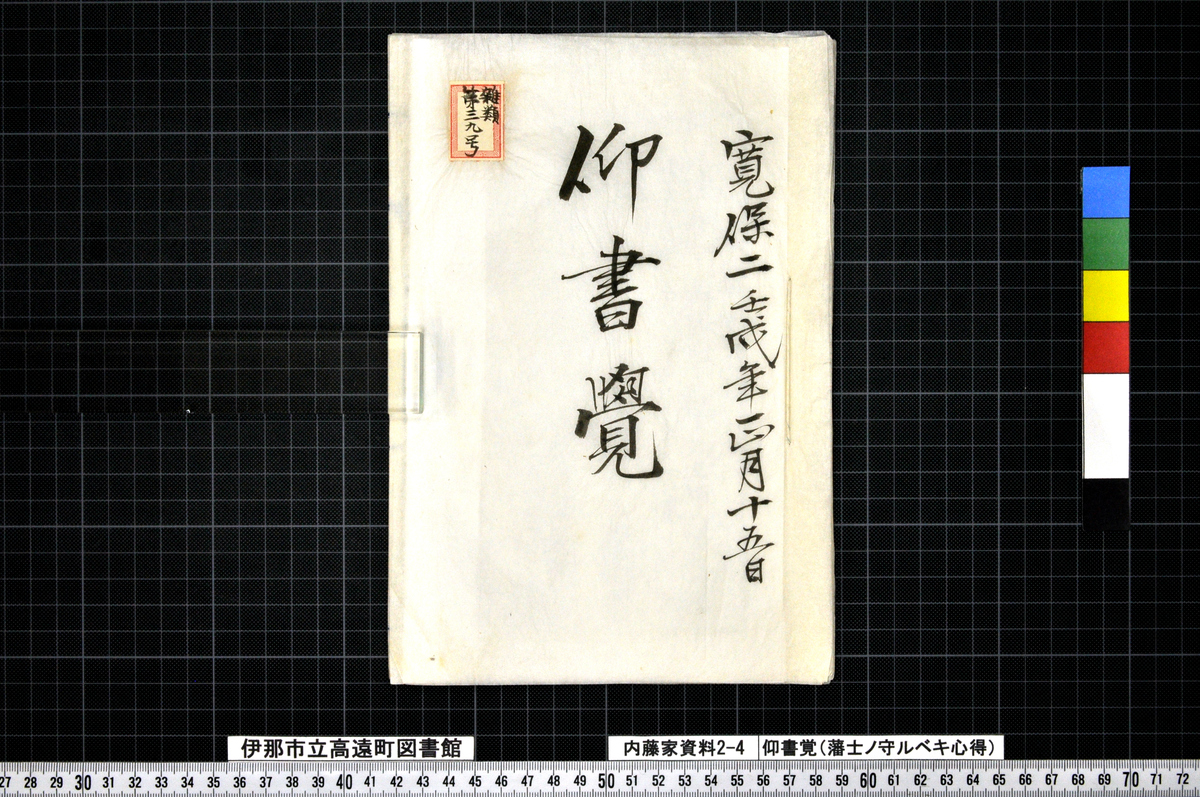 寛保二壬戌年正月十五日
仰書覺
雜類
第三九号
伊那市立高遠町図書館
内藤家資料2-4
仰書覚(藩士ノ守ルベキ心得)
27 28 29 30 31 32 33 34 35 36 37 38 39 40 41 42 43 44 45 46 47 48 49 50 51 52 53 54 55 56 57 58 59 60 61 62 63 64 65 66 67 68 69 70 71 72